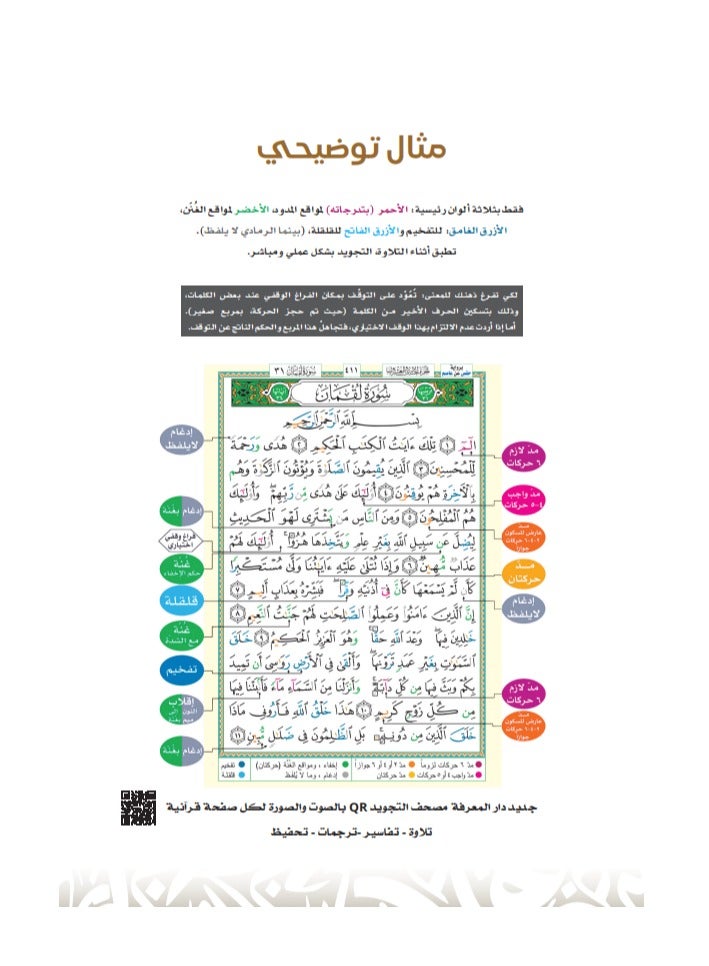 مثال توضيحي
فقط بثلاثة ألوان رئيسية: الأحمر (بتدرجاته) لمواقع المدود، الأخضر لمواقع الغُنَن،
الأزرق الغامق: للتفخيم والأزرق الفاتح للقلقلة، (بينما الرمادي لا يلفظ).
تطبق أثناء التلاوة، التجويد بشكل عملي ومباشر.
لكي تفرغ ذهنك للمعنى: تُعُوّد على التوقّف بمكان الفراغ الوقفي عند بعض الكلمات،
وذلك بتسكين الحرف الأخير من الكلمة (حيث تم حجز الحركة، بمربع صغير).
أما إذا أردت عدم الالتزام بهذا الوقف الاختياري، فتجاهلْ هذا المربع والحكم الناتج عن التوقف.
برواية
حفص عن عاصم
٤١١
سُورَةُ لُقْمَانَ ٣١
سُورَةُ لُقْمَانَ
بِسْمِ ٱللَّهِ ٱلرَّحْمَٰنِ ٱلرَّحِيمِ
الٓمٓ ١ تِلْكَ ءَايَٰتُ ٱلْكِتَٰبِ ٱلْحَكِيمِ ٢ هُدًى وَرَحْمَةً
لِّلْمُحْسِنِينَ ٣ ٱلَّذِينَ يُقِيمُونَ ٱلصَّلَوٰةَ وَيُؤْتُونَ ٱلزَّكَوٰةَ وَهُم
بِٱلْءَاخِرَةِ هُمْ يُوقِنُونَ ٤ أُو۟لَٰٓئِكَ عَلَىٰ هُدًى مِّن رَّبِّهِمْ ۖ وَأُو۟لَٰٓئِكَ
هُمُ ٱلْمُفْلِحُونَ ٥ وَمِنَ ٱلنَّاسِ مَن يَشْتَرِى لَهْوَ ٱلْحَدِيثِ
لِيُضِلَّ عَن سَبِيلِ ٱللَّهِ بِغَيْرِ عِلْمٍ وَيَتَّخِذَهَا هُزُوًا ۚ أُو۟لَٰٓئِكَ لَهُمْ
عَذَابٌ مُّهِينٌ ٦ وَإِذَا تُتْلَىٰ عَلَيْهِ ءَايَٰتُنَا وَلَّىٰ مُسْتَكْبِرًا
كَأَن لَّمْ يَسْمَعْهَا كَأَنَّ فِىٓ أُذُنَيْهِ وَقْرًا ۖ فَبَشِّرْهُ بِعَذَابٍ أَلِيمٍ ٧
إِنَّ ٱلَّذِينَ ءَامَنُوا۟ وَعَمِلُوا۟ ٱلصَّٰلِحَٰتِ لَهُمْ جَنَّٰتُ ٱلنَّعِيمِ ٨
خَٰلِدِينَ فِيهَا ۖ وَعْدَ ٱللَّهِ حَقًّا ۚ وَهُوَ ٱلْعَزِيزُ ٱلْحَكِيمُ ٩ خَلَقَ
ٱلسَّمَٰوَٰتِ بِغَيْرِ عَمَدٍ تَرَوْنَهَا ۖ وَأَلْقَىٰ فِى ٱلْأَرْضِ رَوَٰسِىَ أَن تَمِيدَ
بِكُمْ وَبَثَّ فِيهَا مِن كُلِّ دَآبَّةٍ ۚ وَأَنزَلْنَا مِنَ ٱلسَّمَآءِ مَآءً فَأَنۢبَتْنَا فِيهَا
مِن كُلِّ زَوْجٍ كَرِيمٍ ١٠ هَٰذَا خَلْقُ ٱللَّهِ فَأَرُونِى مَاذَا
خَلَقَ ٱلَّذِينَ مِن دُونِهِۦ ۚ بَلِ ٱلظَّٰلِمُونَ فِى ضَلَٰلٍ مُّبِينٍ ١١
مدّ لازم
٦ حركات
مد واجب
٤-٥ حركات
مـد
عارض للسكون
٢-٤-٦ حركات
جوازاً
مـــد
حركتان
إدغام
لايلفظ
مدّ لازم
٦ حركات
مـد
عارض للسكون
٢-٤-٦ حركات
جوازاً
إدغام
لايلفظ
إدغام بغنة
فراغ وقفي
اختياري
غُنّة
حكم الإخفاء
قلقلة
غُنّة
مع الشدة
تفخيم
إقلاب
النون إلى
ميم بغنة
إدغام بغنة
مدّ ٦ حركات لزوماً
مدّ ٢ أو ٤ أو ٦ جوازاً
إخفاء، ومواقع الغنّة (حركتان)
تفخيم
مدّ واجب ٤ أو ٥ حركات
مدّ حركتان
إدغام، وما لا يُلفظ
قلقلة
جديد دار المعرفة مصحف التجويد QR بالصوت والصورة لكل صفحة قرآنية
تلاوة - تفاسير -ترجمات - تحفيظ